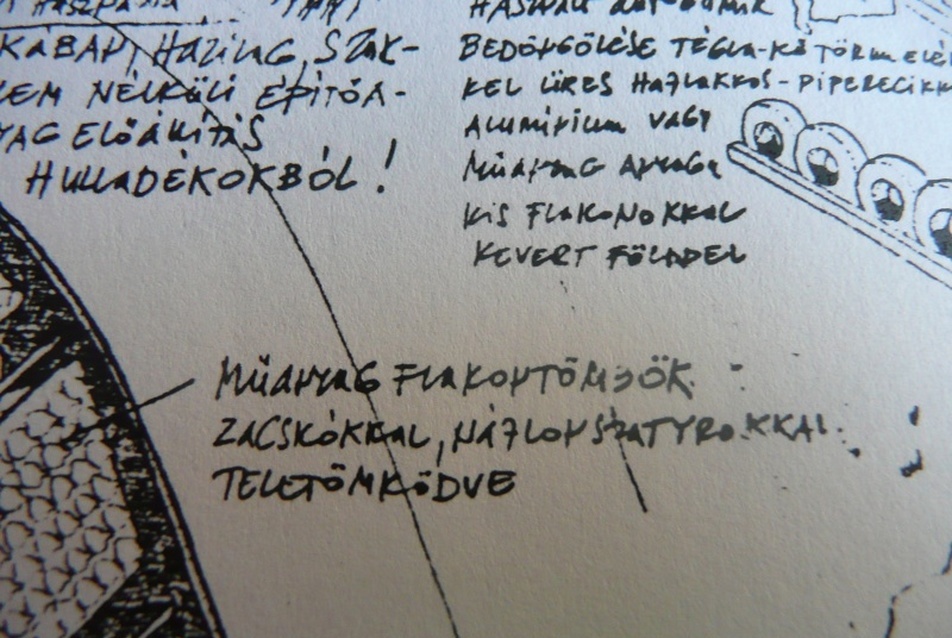 KÁBAN, HÁZILAG, SZAK-
LEM NÉLKÜLI ÉPÍTŐA-
YAG ELŐÁLLÍTÁS
HULLADÉKOKBÓL!
HASZNÁLT AUTÓGUMIK
BEDÖNGÖLÉSE TÉGLA-KŐ TÖRMELÉ
KEL ÜRES HAJLAKKOS-PIPERECIKK
ALUMÍNIUM VAGY
MŰANYAG ANYAGÚ
KIS FLAKONOKKAL
KEVERT FÖLDDEL
MŰANYAG FLAKONTÖMBÖK
ZACSKÓKKAL, NÁJLONSZATYROKKAL
TELETÖMKÖDVE